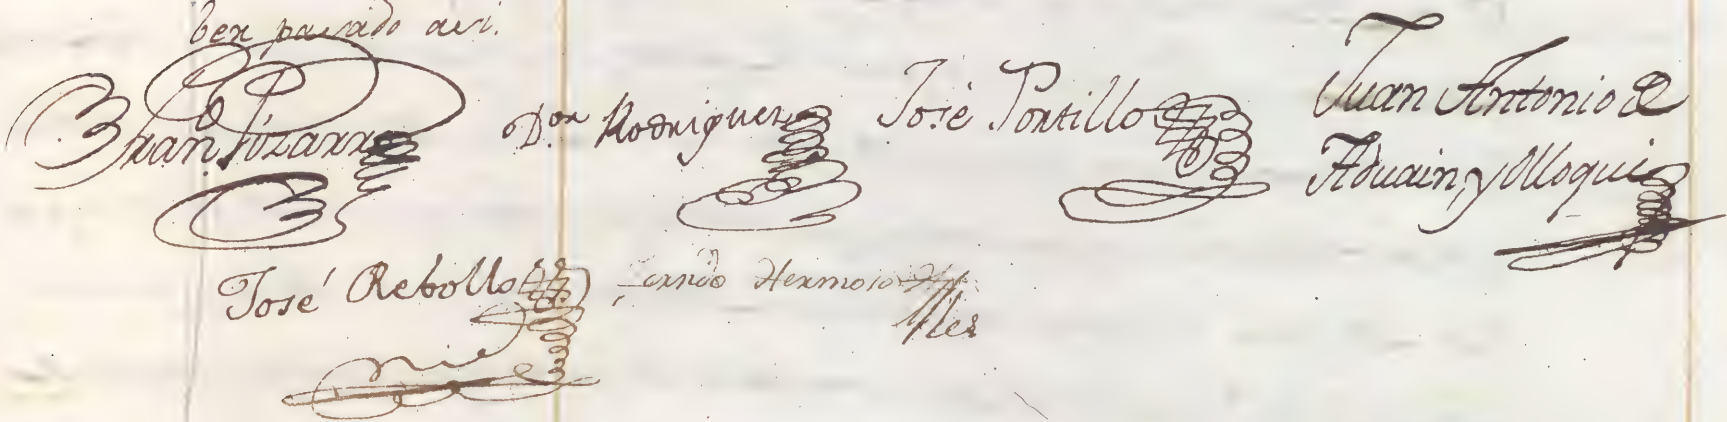 ber pasado asi.
Fran.co Pizarro D.or Rodriguez José Portillo Juan Antonio de
Aduain, y Olloqui
José Rebollo Hermoso